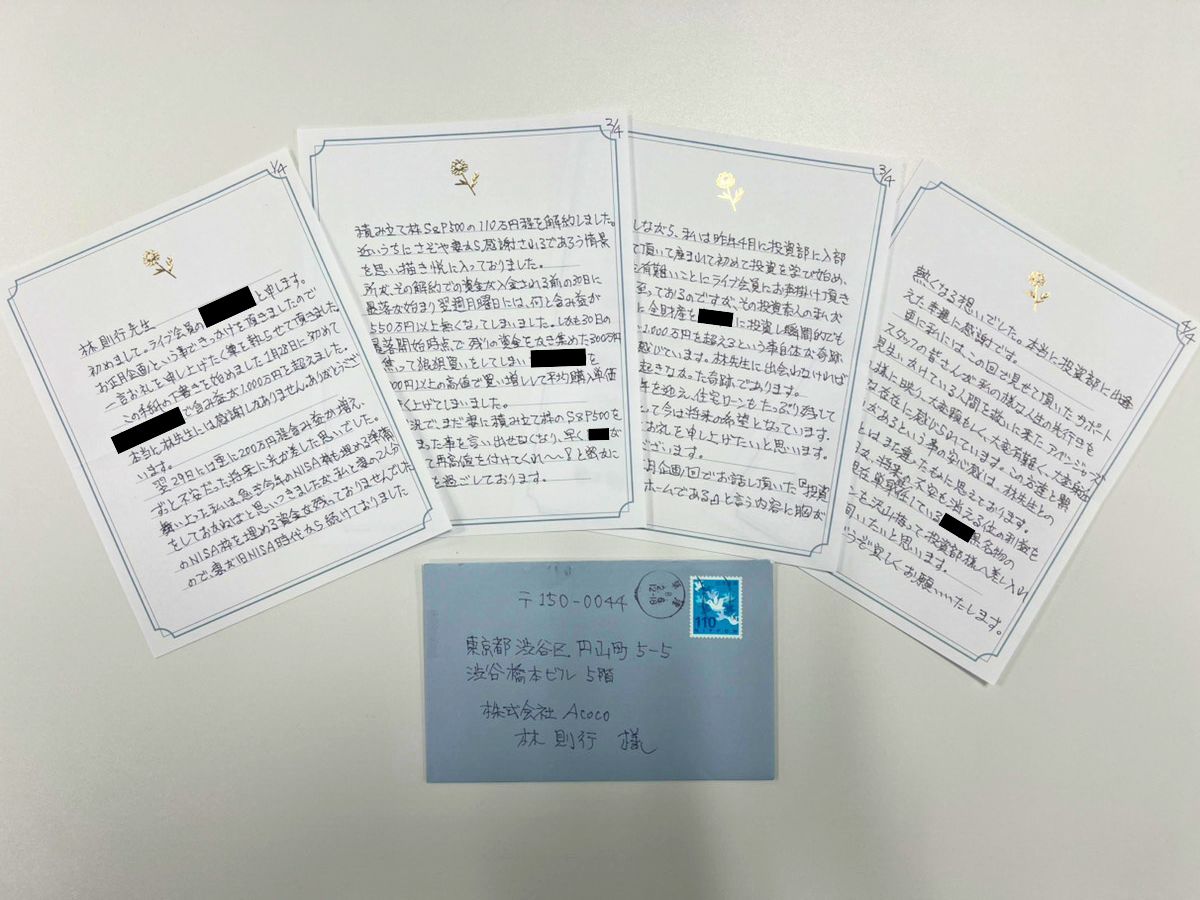 1/4
林則行先生
初めまして。ライブ会員の と申します。
お正月企画という事できっかけを頂きましたので
一言お礼を申し上げたく筆を執らせて頂きました。
この手紙の下書きを始めました1月28日に初めて
で含み益が1,000万円を超えました。
本当に林先生には感謝しかありません。ありがとうござい
います。
翌29日には更に200万円程含み益が増え、
ずっと不安だった将来に光が差した思いでした。
舞い上った私は急ぎ今年のNISA枠も埋める準備
をしておかねばと思いつきましたが、私と妻の2人分
のNISA枠を埋める資金な残っておりませんでした
ので、妻が旧NISA時代から続けておりました
2/4
積み立て株S&P500の110万円程を解約しました。
近いうちにさぞや妻から感謝されるであろう情景
を思い描き悦に入っておりました。
所が、その解約での資金が入金される前の30日に
暴落が始まり翌週月曜日には、何と含み益が
550万円以上無くなってしまいました。しかも30日の
暴落開始時点で残りの資金をかき集めた300万円
焦って狼狽買いをしてしまい を
00円以上の高値で買い増しして平均購入単価
く上げてしまいました。
況でまだ妻に積み立て株のS&P500を
まった事を言い出せなくなり、早く が
て再高値を付けてくれ〜!と
過ごしております。
3/4
しながら、私は昨年4月に投資部に入部
て頂いて産まれて初めて投資を学び始め、
有難いことにライブ会員にお声掛け頂き
至っておるのですが、その投資素人の私が
全財産を に投資し瞬間的でも
1,000万円を超えるという事自体が奇跡
感じています。林先生に出会わなければ
起きなかった奇跡であります。
年を迎え、住宅ローンもたっぷり残して
て今は将来の希望となっています。
お礼を申し上げたいと思います。
ございます。
月企画1回でお話し頂いた『投資
ホームである』と言う内容に胸が
4/4
熱くなる想いでした。本当に投資部に出逢
えた幸運に感謝です。
更に私には、この回で見せて頂いたサポート
スタッフの皆さんが私の様な人生の先行きを
見失いかけている人間を救いに来たアベンジャーズ
様に映り、大変頼もしく、大変有難く、大変身近
な存在に感じられています。この方達と繋
があるという事の安心感は、林先生との
とはまた違ったものに思えております。
将来の不安も消える位の利益を
現在単身赴任している 県名物の
を沢山持って投資部様へ差し入れ
伺いたいと思います。
うぞ宜しくお願いいたします。
〒150-0044
110
NIPPON
東京都渋谷区円山町5-5
渋谷橋本ビル5階
株式会社Acoco
林則行 様